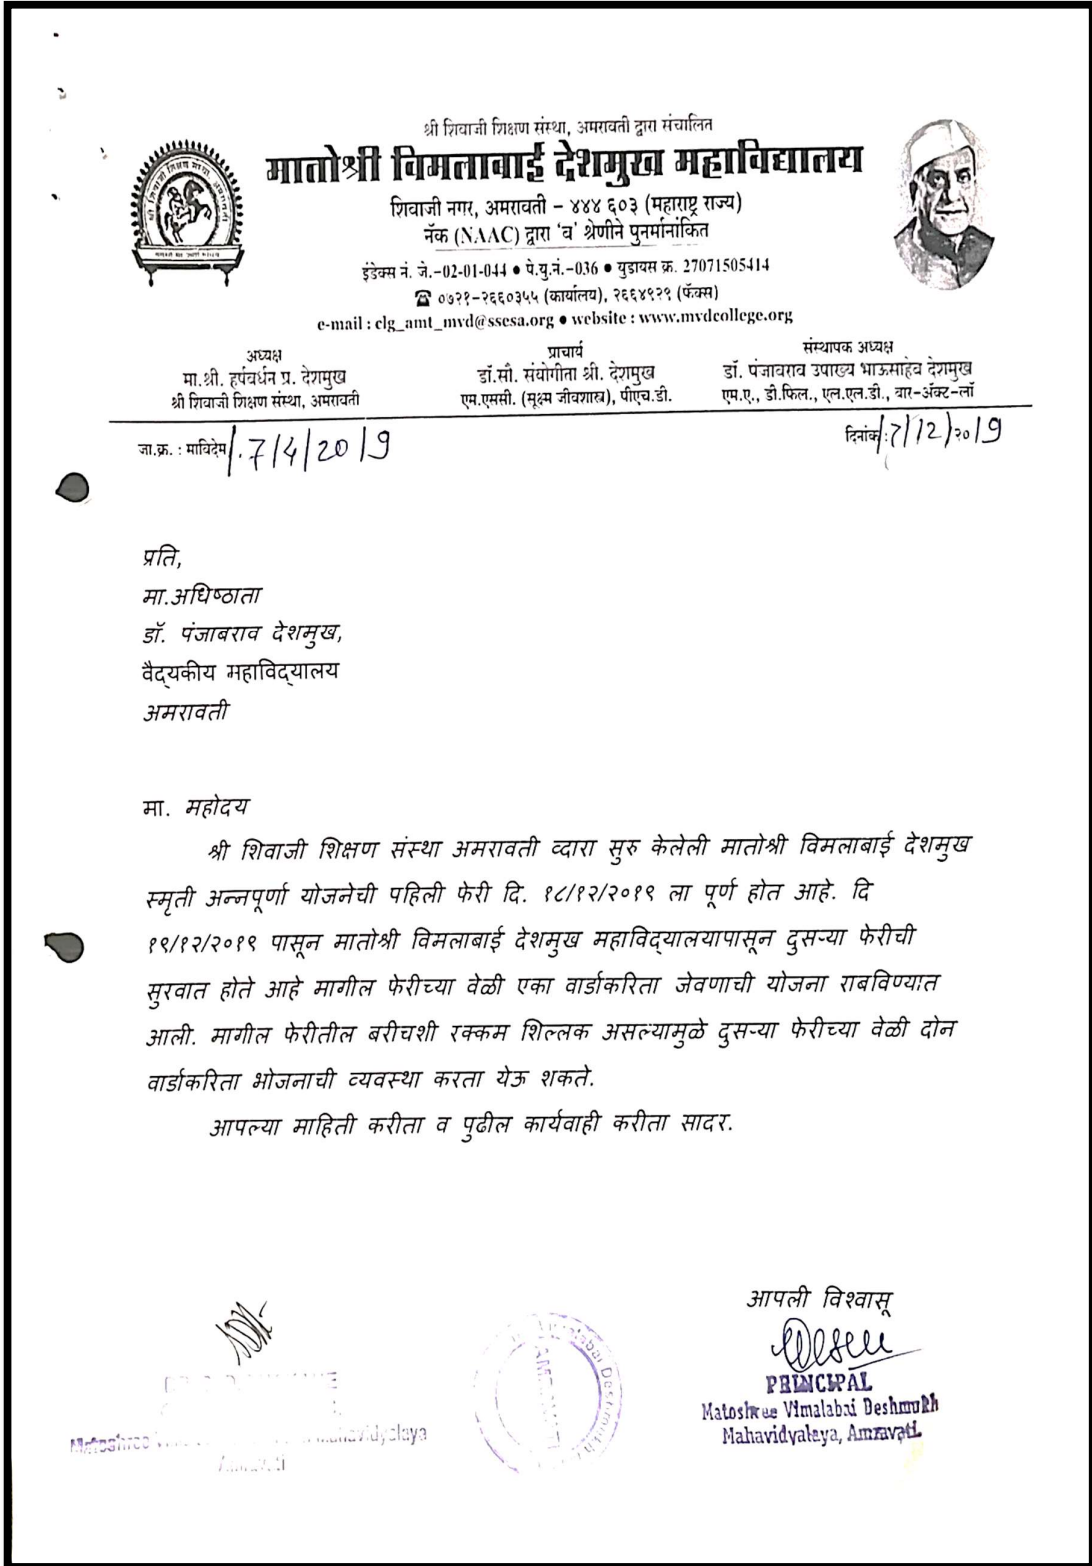 श्री शिवाजी शिक्षण संस्था, अमरावती द्वारा संचालित
मातोश्री विमलाबाई देशमुख महाविद्यालय
शिवाजी नगर, अमरावती – ४४४ ६०३ (महाराष्ट्र राज्य)
नॅक (NAAC) द्वारा 'ब' श्रेणीने पुनर्मानांकित
इंडेक्स नं. जे.–02-01-044 ● पे.यु.नं.–036 ● युडायस क्र. 27071505414
☎ ०७२१–२६६०३५५ (कार्यालय), २६६४९२१ (फॅक्स)
e-mail : clg_amt_mvd@ssesa.org ● website : www.mvdcollege.org
अध्यक्ष
मा.श्री. हर्षवर्धन प्र. देशमुख
श्री शिवाजी शिक्षण संस्था, अमरावती
प्राचार्य
डॉ.सौ. संयोगीता श्री. देशमुख
एम.एमसी. (सूक्ष्म जीवशास्त्र), पीएच.डी.
संस्थापक अध्यक्ष
डॉ. पंजाबराव उपाख्य भाऊसाहेब देशमुख
एम.ए., डी.फिल., एल.एल.डी., बार-अ‍ॅक्ट-लॉ
जा.क्र. : माविदेम/.7/4/2019
दिनांक:17/12/२०19
प्रति,
मा.अधिष्ठाता
डॉ. पंजाबराव देशमुख,
वैद्यकीय महाविद्यालय
अमरावती
मा. महोदय
श्री शिवाजी शिक्षण संस्था अमरावती व्दारा सुरु केलेली मातोश्री विमलाबाई देशमुख
स्मृती अन्नपूर्णा योजनेची पहिली फेरी दि. १८/१२/२०१९ ला पूर्ण होत आहे. दि
१९/१२/२०१९ पासून मातोश्री विमलाबाई देशमुख महाविद्यालयापासून दुसऱ्या फेरीची
सुरवात होते आहे मागील फेरीच्या वेळी एका वार्डाकरिता जेवणाची योजना राबविण्यात
आली. मागील फेरीतील बरीचशी रक्कम शिल्लक असल्यामुळे दुसऱ्या फेरीच्या वेळी दोन
वार्डाकरिता भोजनाची व्यवस्था करता येऊ शकते.
आपल्या माहिती करीता व पुढील कार्यवाही करीता सादर.
आपली विश्वासू
PRINCIPAL
Matoshree Vimalabai Deshmukh
Mahavidyalaya, Amravati
Matoshree
Mahavidyalaya
Amravati
Vimalabai Deshmukh
AMRAVATI